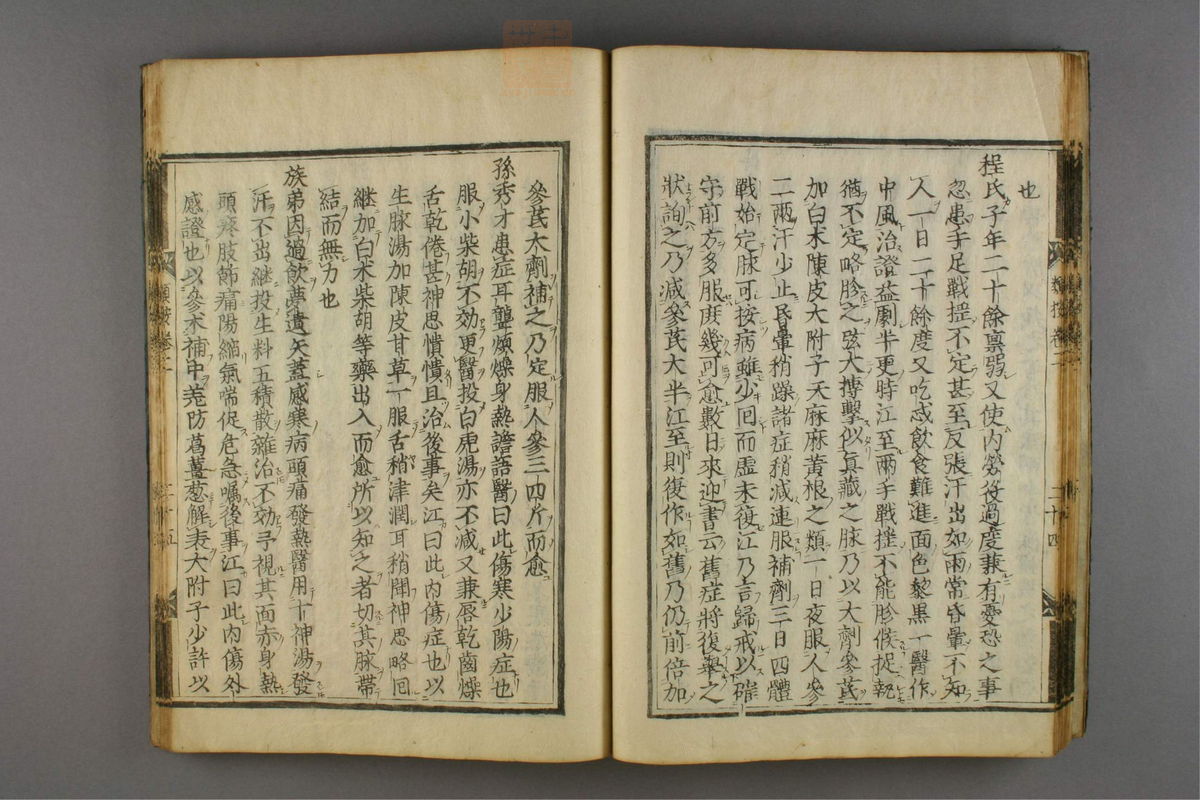 也
程氏子年二十餘禀弱又使内勞役過度兼有憂恐之事
忽患手足戰揺不定甚至反張汗出如雨常昏暈不知
人一日二十餘度又吃忒飲食難進面色黎黒一醫作
中風治證益劇半更時江至兩手戰揺不能胗候捉執
猶不定略胗之弦大搏擊似真藏之脉乃以大劑參芪
加白术陳皮大附子天麻麻黄根之類一日夜服人參
二兩汗少止昏暈稍躁諸症稍减連服補劑三日四體
戰始定脉可按病雖少囘而虚未復江乃言歸戒以確
守前方多服庶幾可愈數日來迎書云舊症將復舉之
狀詢之乃减參芪大半江至則復作如舊乃仍前倍加
參芪大劑補之乃定服人參三四斤而愈
孫秀才患症耳聾煩燥身熱譫語醫曰此傷寒少陽症也
服小柴胡不効更醫投白虎湯亦不减又兼唇乾齒燥
舌乾倦甚神思憒憒且治後事矣江曰此内傷症也以
生脉湯加陳皮甘草一服舌稍津潤耳稍聞神思略囘
継加白术柴胡等藥出入而愈所以知之者切其脉帶
結而無力也
族弟因過飲夢遺矢蓋感寒病頭痛發熱醫用十神湯發
汗不出継投生料五積散雜治不効予視其面赤身熱
頭疼肢節痛陽縮氣喘促危急囑後事江曰此内傷外
感證也以參术補中羗防葛薑葱解表大附子少許以
類按卷二
二十四
類按卷二
二十五